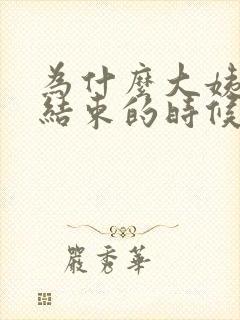 為什麼大姊
結束的時候
嚴秀華